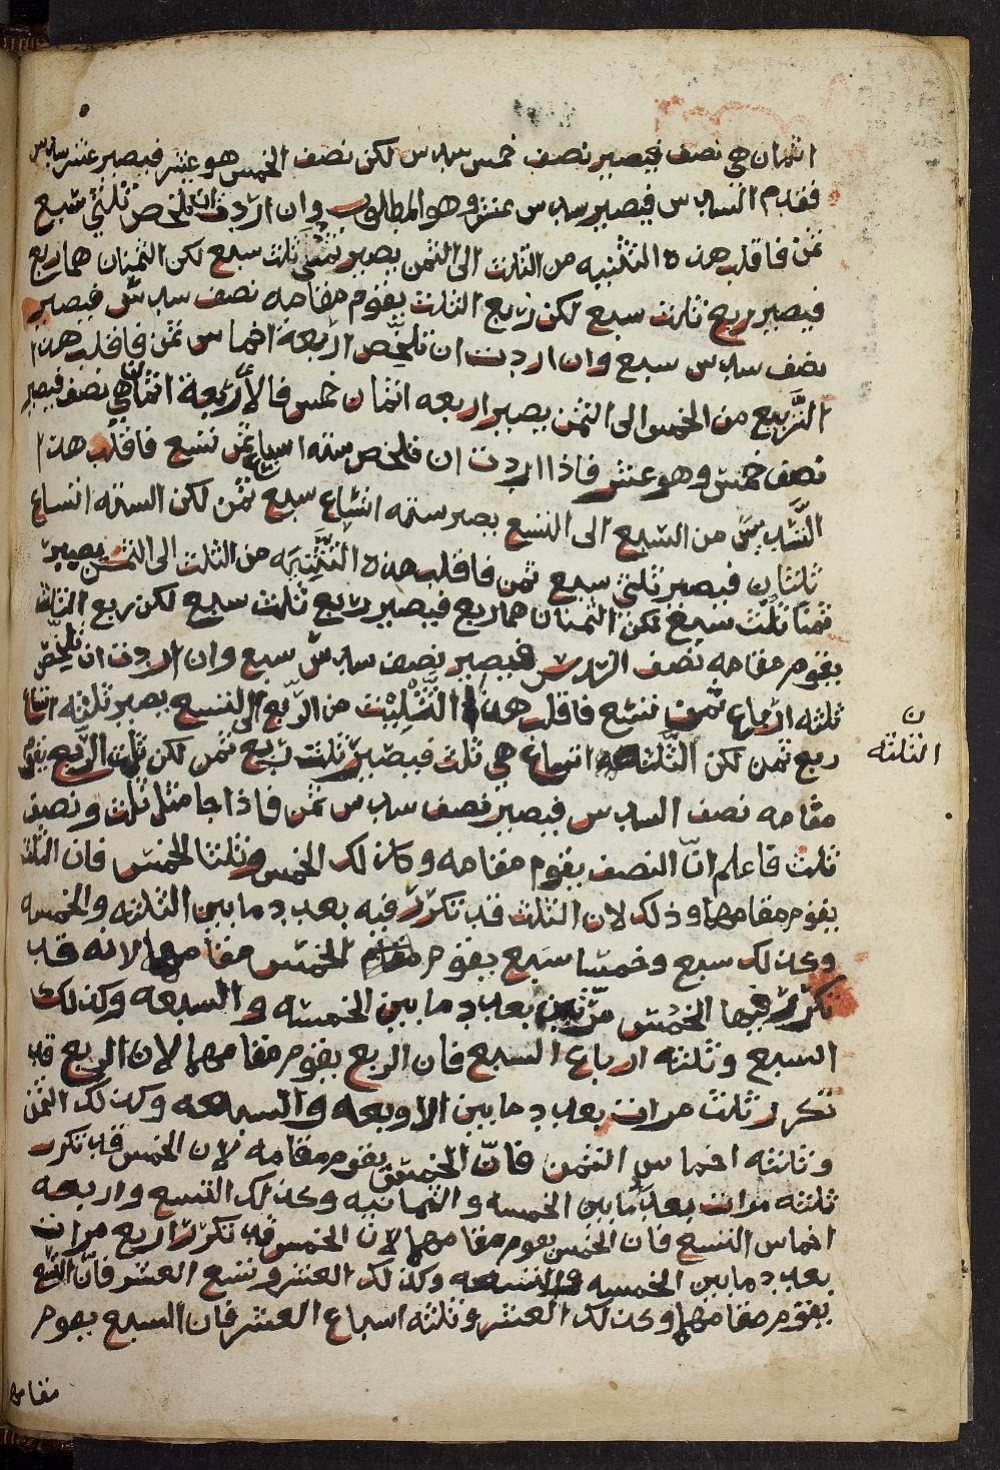 اثمان هي نصف فيصير نصف خمس سدس لكن نصف الخمس هو عشر فيصير عشر سدس
فقدم السدس فيصير سدس عشر وهو المطلوب وان اردت ان تلخص ثلثي سبع
ثمن فاقلب هذه التثنيه من الثلث الى الثمن يصير ثمني ثلث سبع لكن الثمنان هما ربع
فيصير ربع ثلث سبع لكن ربع الثلث يقوم مقامه نصف سدس فيصير
نصف سدس سبع وان اردت ان تلخص اربعة اخماس ثمن فاقلب هذا
التربيع من الخمس الى الثمن يصير اربعه اثمان خمس فالأربعة اثمان هي نصف فيصير
نصف خمس وهو عشر فاذا اردت ان تلخص سته اسباع ثمن تسع فاقلب هذا
التسديس من السبع الى التسع يصير سته اتساع سبع ثمن لكن السته اتساع
ثلثان فيصير ثلثي سبع ثمن فاقلب هذه التثنيه من الثلث الى الثمن يصير
ثمنا ثلث سبع لكن الثمنان هما ربع فيصير ربع ثلث سبع لكن ربع الثلث
يقوم مقامه نصف السدس فيصير نصف سدس سبع وان اردت ان تلخص
ثلثه ارباع ثمن تسع فاقلب هذا التثليث من الربع الى التسع يصير ثلثه اتساع
ربع ثمن لكن الثلثه اتساع هي ثلث فيصير ثلث ربع ثمن لكن ثلث الربع يقوم
ن
الثلثه
مقامه نصف السدس فيصير نصف سدس ثمن فاذا جا مثل ثلث ونصف
ثلث فاعلم انّ النصف يقوم مقامه وكذلك الخمس وثلثا الخمس فان الثلث
يقوم مقامهما وذلك لان الثلث قد تكرر فيه بعدد ما بين الثلثه والخمسه
وكذلك سبع وخمسا سبع يقوم مقام الخمس مقامهما لانه قد
تكرر فيها الخمس مرتين بعدد ما بين الخمسه والسبعه وكذلك
السبع وثلثه ارباع السبع فان الربع يقوم مقامهما لان الربع قد
تكرر ثلث مرات بعدد ما بين الاربعه والسبعه وكذلك الثمن
وثلثه اخماس الثمن فانّ الخمس يقوم مقامه لان الخمس قد تكرر
ثلثه مرات بعدد ما بين الخمسه والثمانيه وكذلك التسع واربعه
اخماس التسع فان الخمس يقوم مقامهما لان الخمس قد تكرر اربع مرات
بعدد ما بين الخمسه والتسعه وكذلك العشر وتسع العشر فانّ التسع
يقوم مقامهما وكذلك العشر وثلثه اسباع العشر فان السبع يقوم
مقامهما